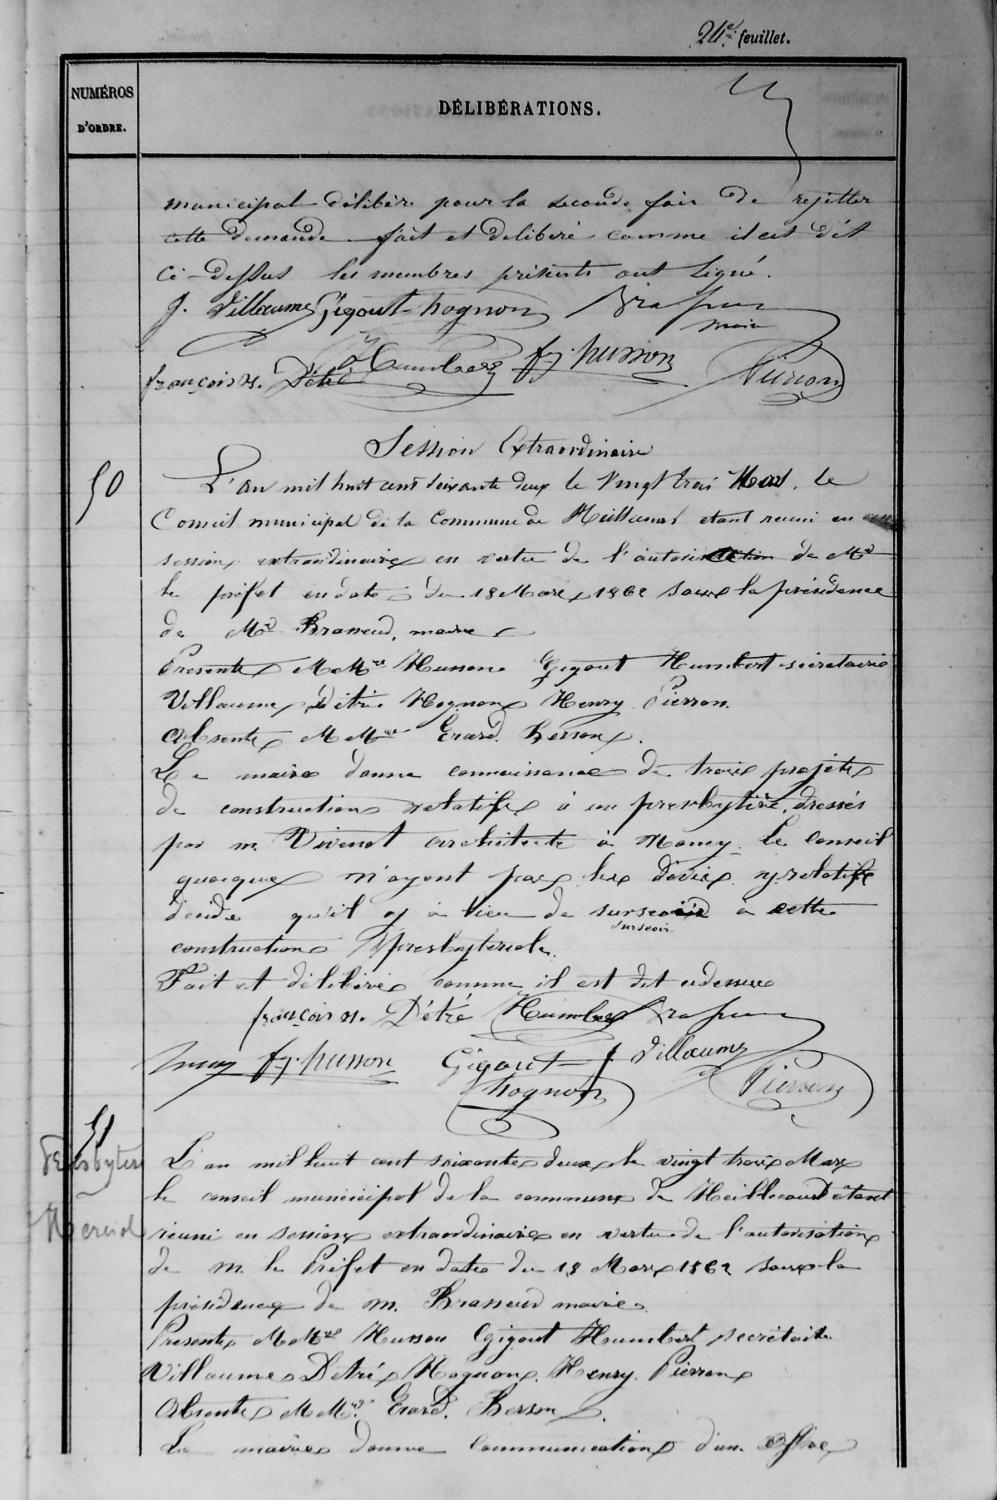 24e feuillet.
NUMÉROS
D'ORDRE.
DÉLIBÉRATIONS.
municipal délibère pour la seconde fois de rejetter
cette demande fait et deliberé comme il est dit
ci-dessus les membres présents ont signé.
J. Villaume Gigout Hognon Brasseur
maire
françois H. Détré Humbert f.j. husson Pierron
Session Extraordinaire
50
L'an mil huit cent soixante deux le Vingt trois Mars. le
Conseil municipal de la Commune de Heillecourt etant reuni en
session extraordinaire en vertu de l'autorisation de Mr
le préfet en date du 18 Mars 1862 sous la présidence
de Mr Brasseur, maire
Presents MMrs Husson Gigout Humbert secretaire
Villaume Détré Hognon Henry Pierron.
Absents MMrs Erard. Berson.
Le maire donne connaissance de trois projets
de construction relatifs à un presbytère, dressés
par m. Vivenot architecte à Nancy. Le Conseil
quoique n'ayant pas les devis y relatifs
décide qu'il y a lieu de surseoir à cette
surseoir
construction presbyteriale.
Fait et délibéré comme il est dit cidessus
françois H. Détré Humbert Brasseur
henry f.j. husson Gigout J. Villaume
hognon Pierron
51
Presbytère
L'an mil huit cent soixante deux le vingt trois Mars
le conseil municipal de la commune de Heillecourt étant
réuni en session extraordinaire en vertu de l'autorisation
de m. le Préfet en date du 18 Mars 1862 sous la
présidence de m. Brasseur maire.
Presents MMrs Husson Gigout Humbert secrétaire
Villaume Détré Hognon. Henry. Pierron
Absents MMrs Erard. Berson.
Le maire donne Communication d'une offre